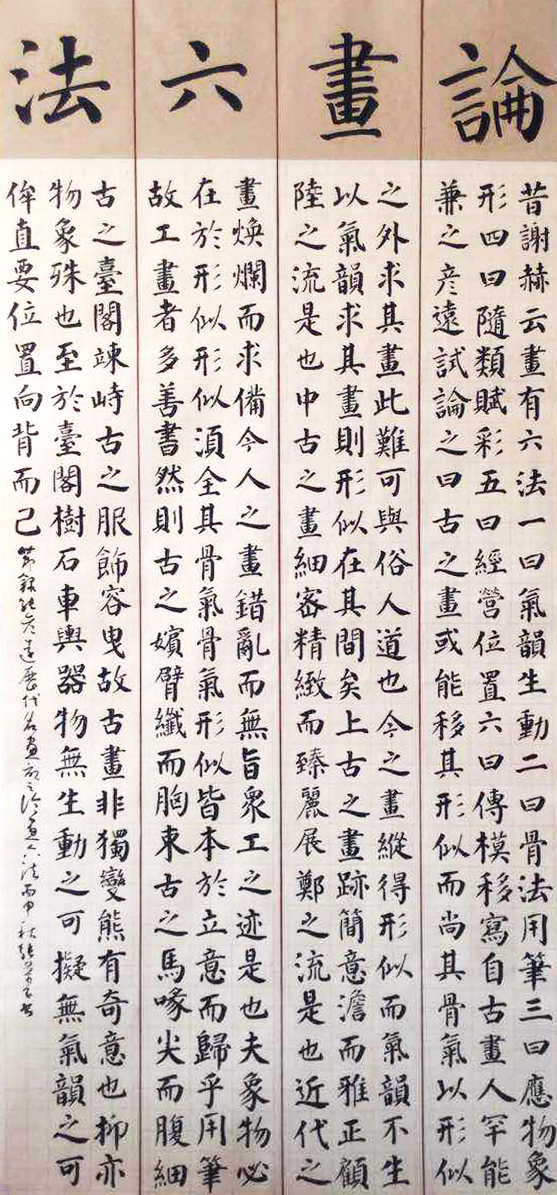 論畫六法
昔謝赫云畫有六法一曰氣韻生動二曰骨法用筆三曰應物象
形四曰隨類賦彩五曰經營位置六曰傳模移寫自古畫人罕能
兼之彦遠試論之曰古之畫或能移其形似而尚其骨氣以形似
之外求其畫此難可與俗人道也今之畫縱得形似而氣韻不生
以氣韻求其畫則形似在其間矣上古之畫跡簡意澹而雅正顧
陸之流是也中古之畫細密精緻而臻麗展鄭之流是也近代之
畫煥爛而求備今人之畫錯亂而無旨衆工之迹是也夫象物必
在於形似形似湏全其骨氣骨氣形似皆本於立意而歸乎用筆
故工畫者多善書然則古之嬪臂纖而胸束古之馬喙尖而腹細
古之臺閣竦峙古之服飾容曳故古畫非獨變熊有奇意也抑亦
物象殊也至於臺閣樹石車輿器物無生動之可擬無氣韻之可
侔直要位置向背而已
節錄張彦遠歷代名畫記之論畫六法丙申秋張書